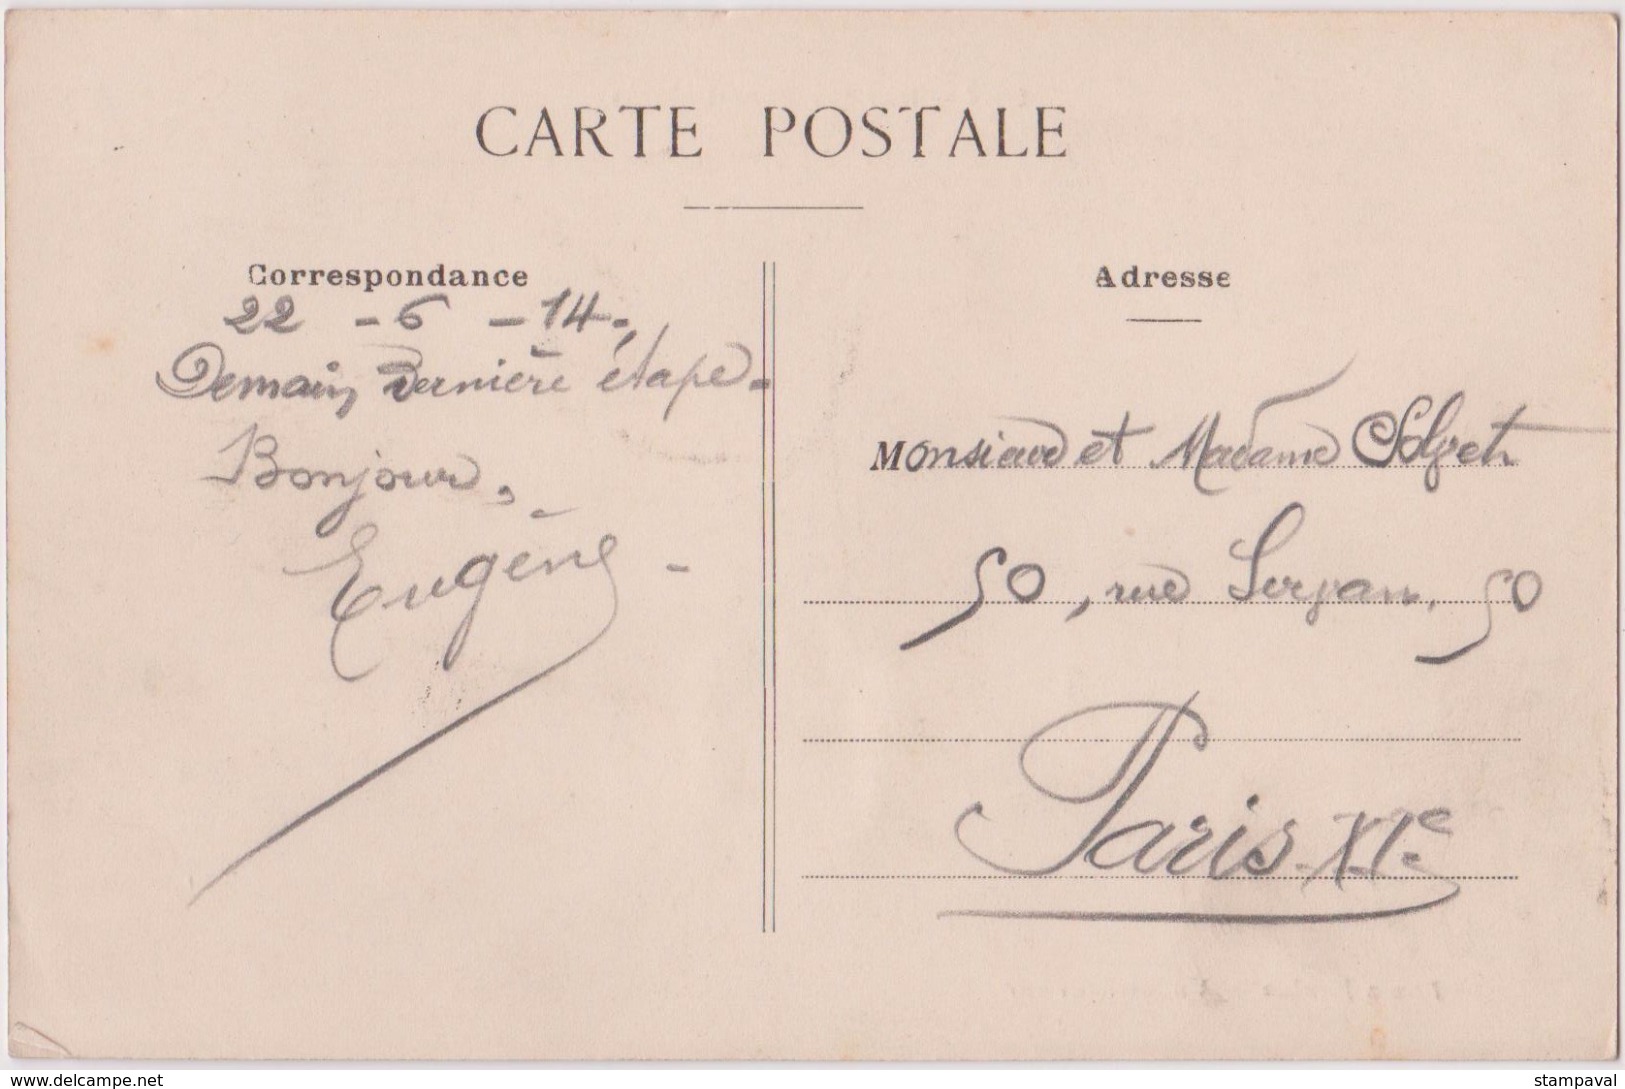 CARTE POSTALE
Correspondance
22 - 6 - 14.
Demain, dernière étape.
Bonjour,
Eugène
Adresse
Monsieur et Madame
50, rue 50
Paris-XIe
www.delcampe.net
stampaval